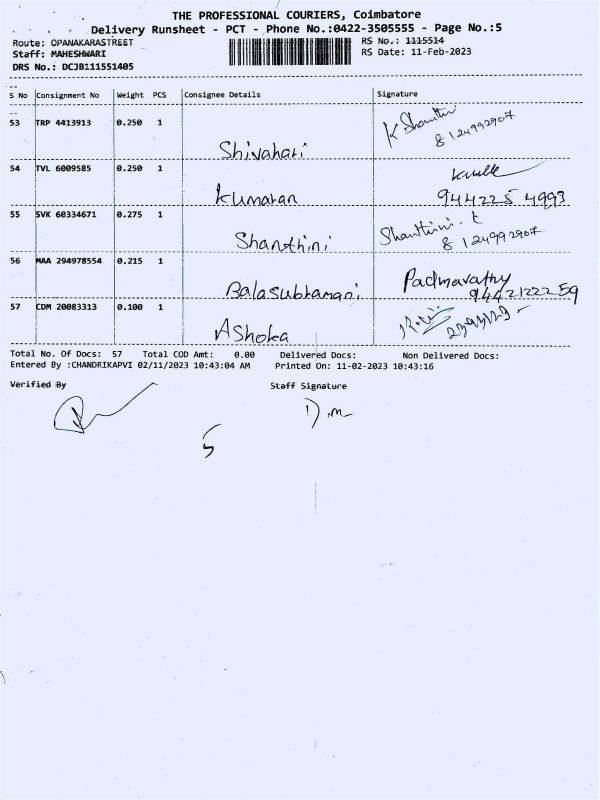 THE PROFESSIONAL COURIERS, Coimbatore
Delivery Runsheet - PCT - Phone No.:0422-3505555 - Page No.:5
Route: OPANAKARASTREET RS No.: 1115514
Staff: MAHESHWARI RS Date: 11-Feb-2023
DRS No.: DCJB111551405
S No Consignment No Weight PCS Consignee Details Signature
53 TRP 4413913 0.250 1 Shivahari K Shanthi 8124992907
54 TVL 6009585 0.250 1 Kumaran 944225 4993
55 SVK 60334671 0.275 1 Shanthini Shanthini. t 8124992907
56 MAA 294978554 0.215 1 Balasubramani Padmavathy 9442122259
57 CDM 20083313 0.100 1 AShoka
Total No. Of Docs: 57 Total COD Amt: 0.00 Delivered Docs: Non Delivered Docs:
Entered By :CHANDRIKAPVI 02/11/2023 10:43:04 AM Printed On: 11-02-2023 10:43:16
Verified By Staff Signature
D.m
5